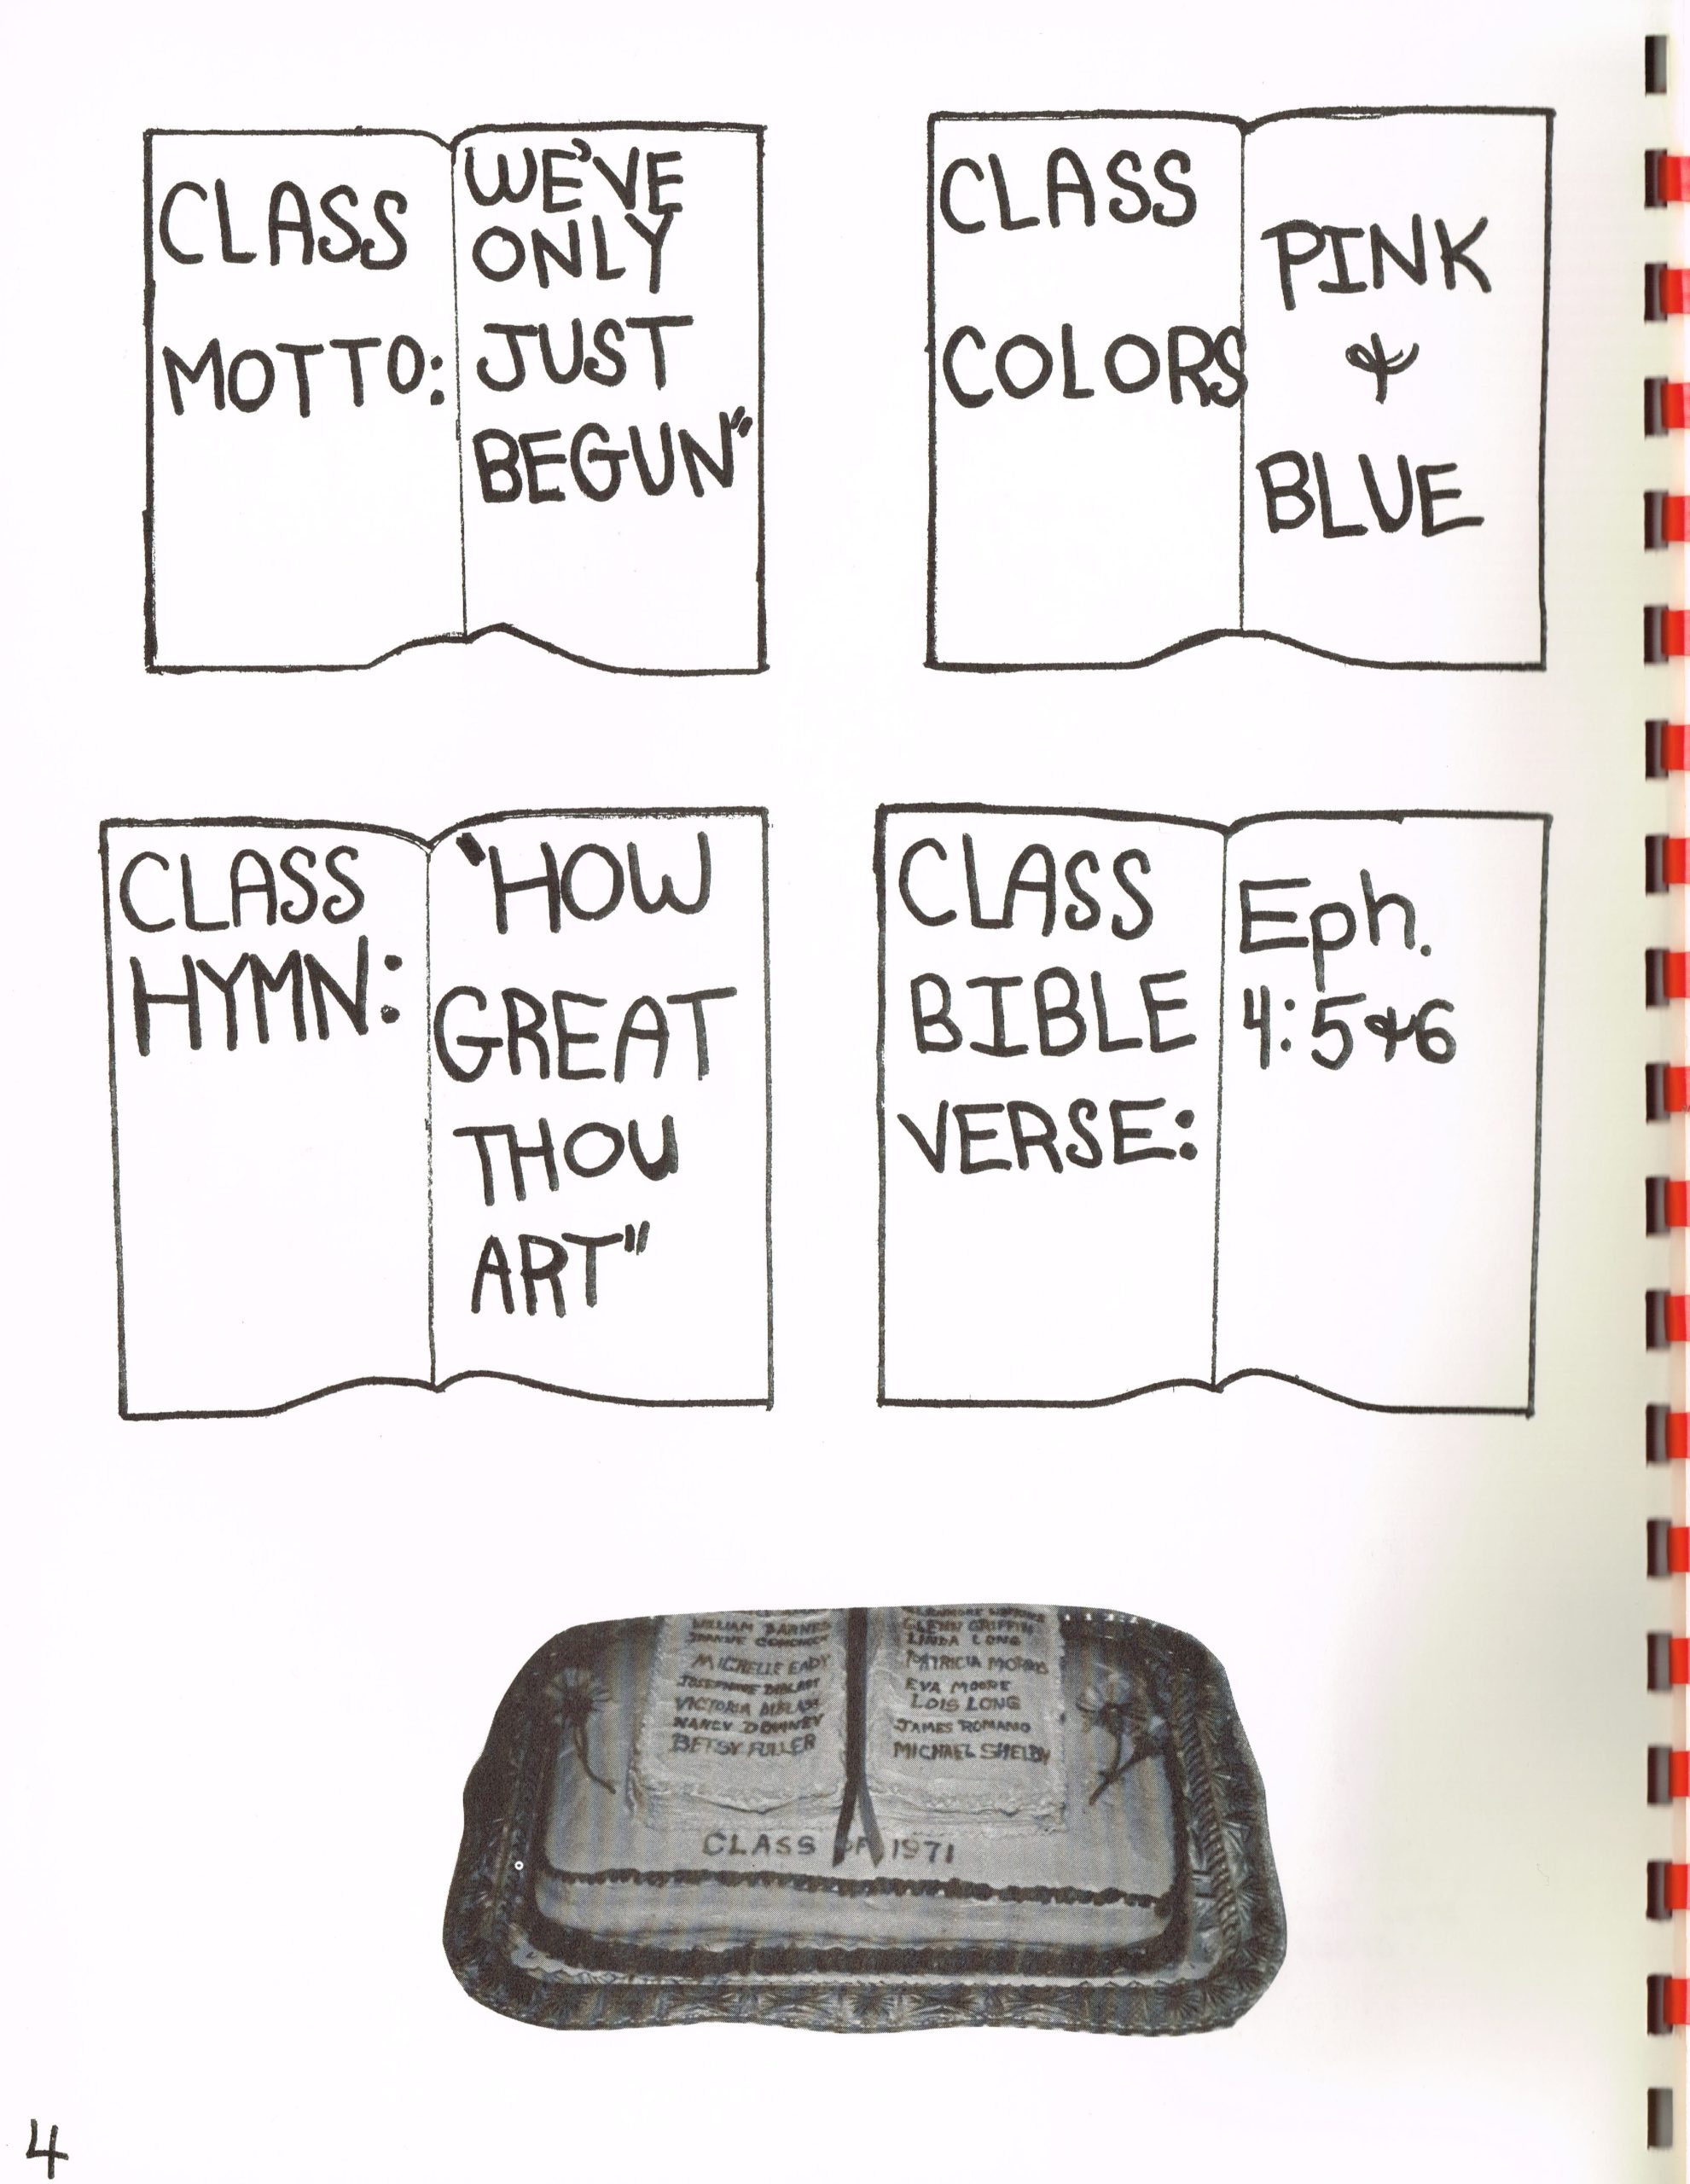 CLASS
MOTTO:
WE'VE
ONLY
JUST
BEGUN"
CLASS
COLORS
PINK
&
BLUE
CLASS
HYMN:
"HOW
GREAT
THOU
ART"
CLASS
BIBLE
VERSE:
Eph.
4:5&6
WILLIAM BARNES
MICHELLE EADY
JOSEPHINE
VICTORIA
NANCY DOWNEY
BETSY FULLER
GLENN GRIFFIN
LINDA LONG
PATRICIA MORRIS
EVA MOORE
LOIS LONG
JAMES ROMANO
MICHAEL SHELBY
CLASS OF 1971
4